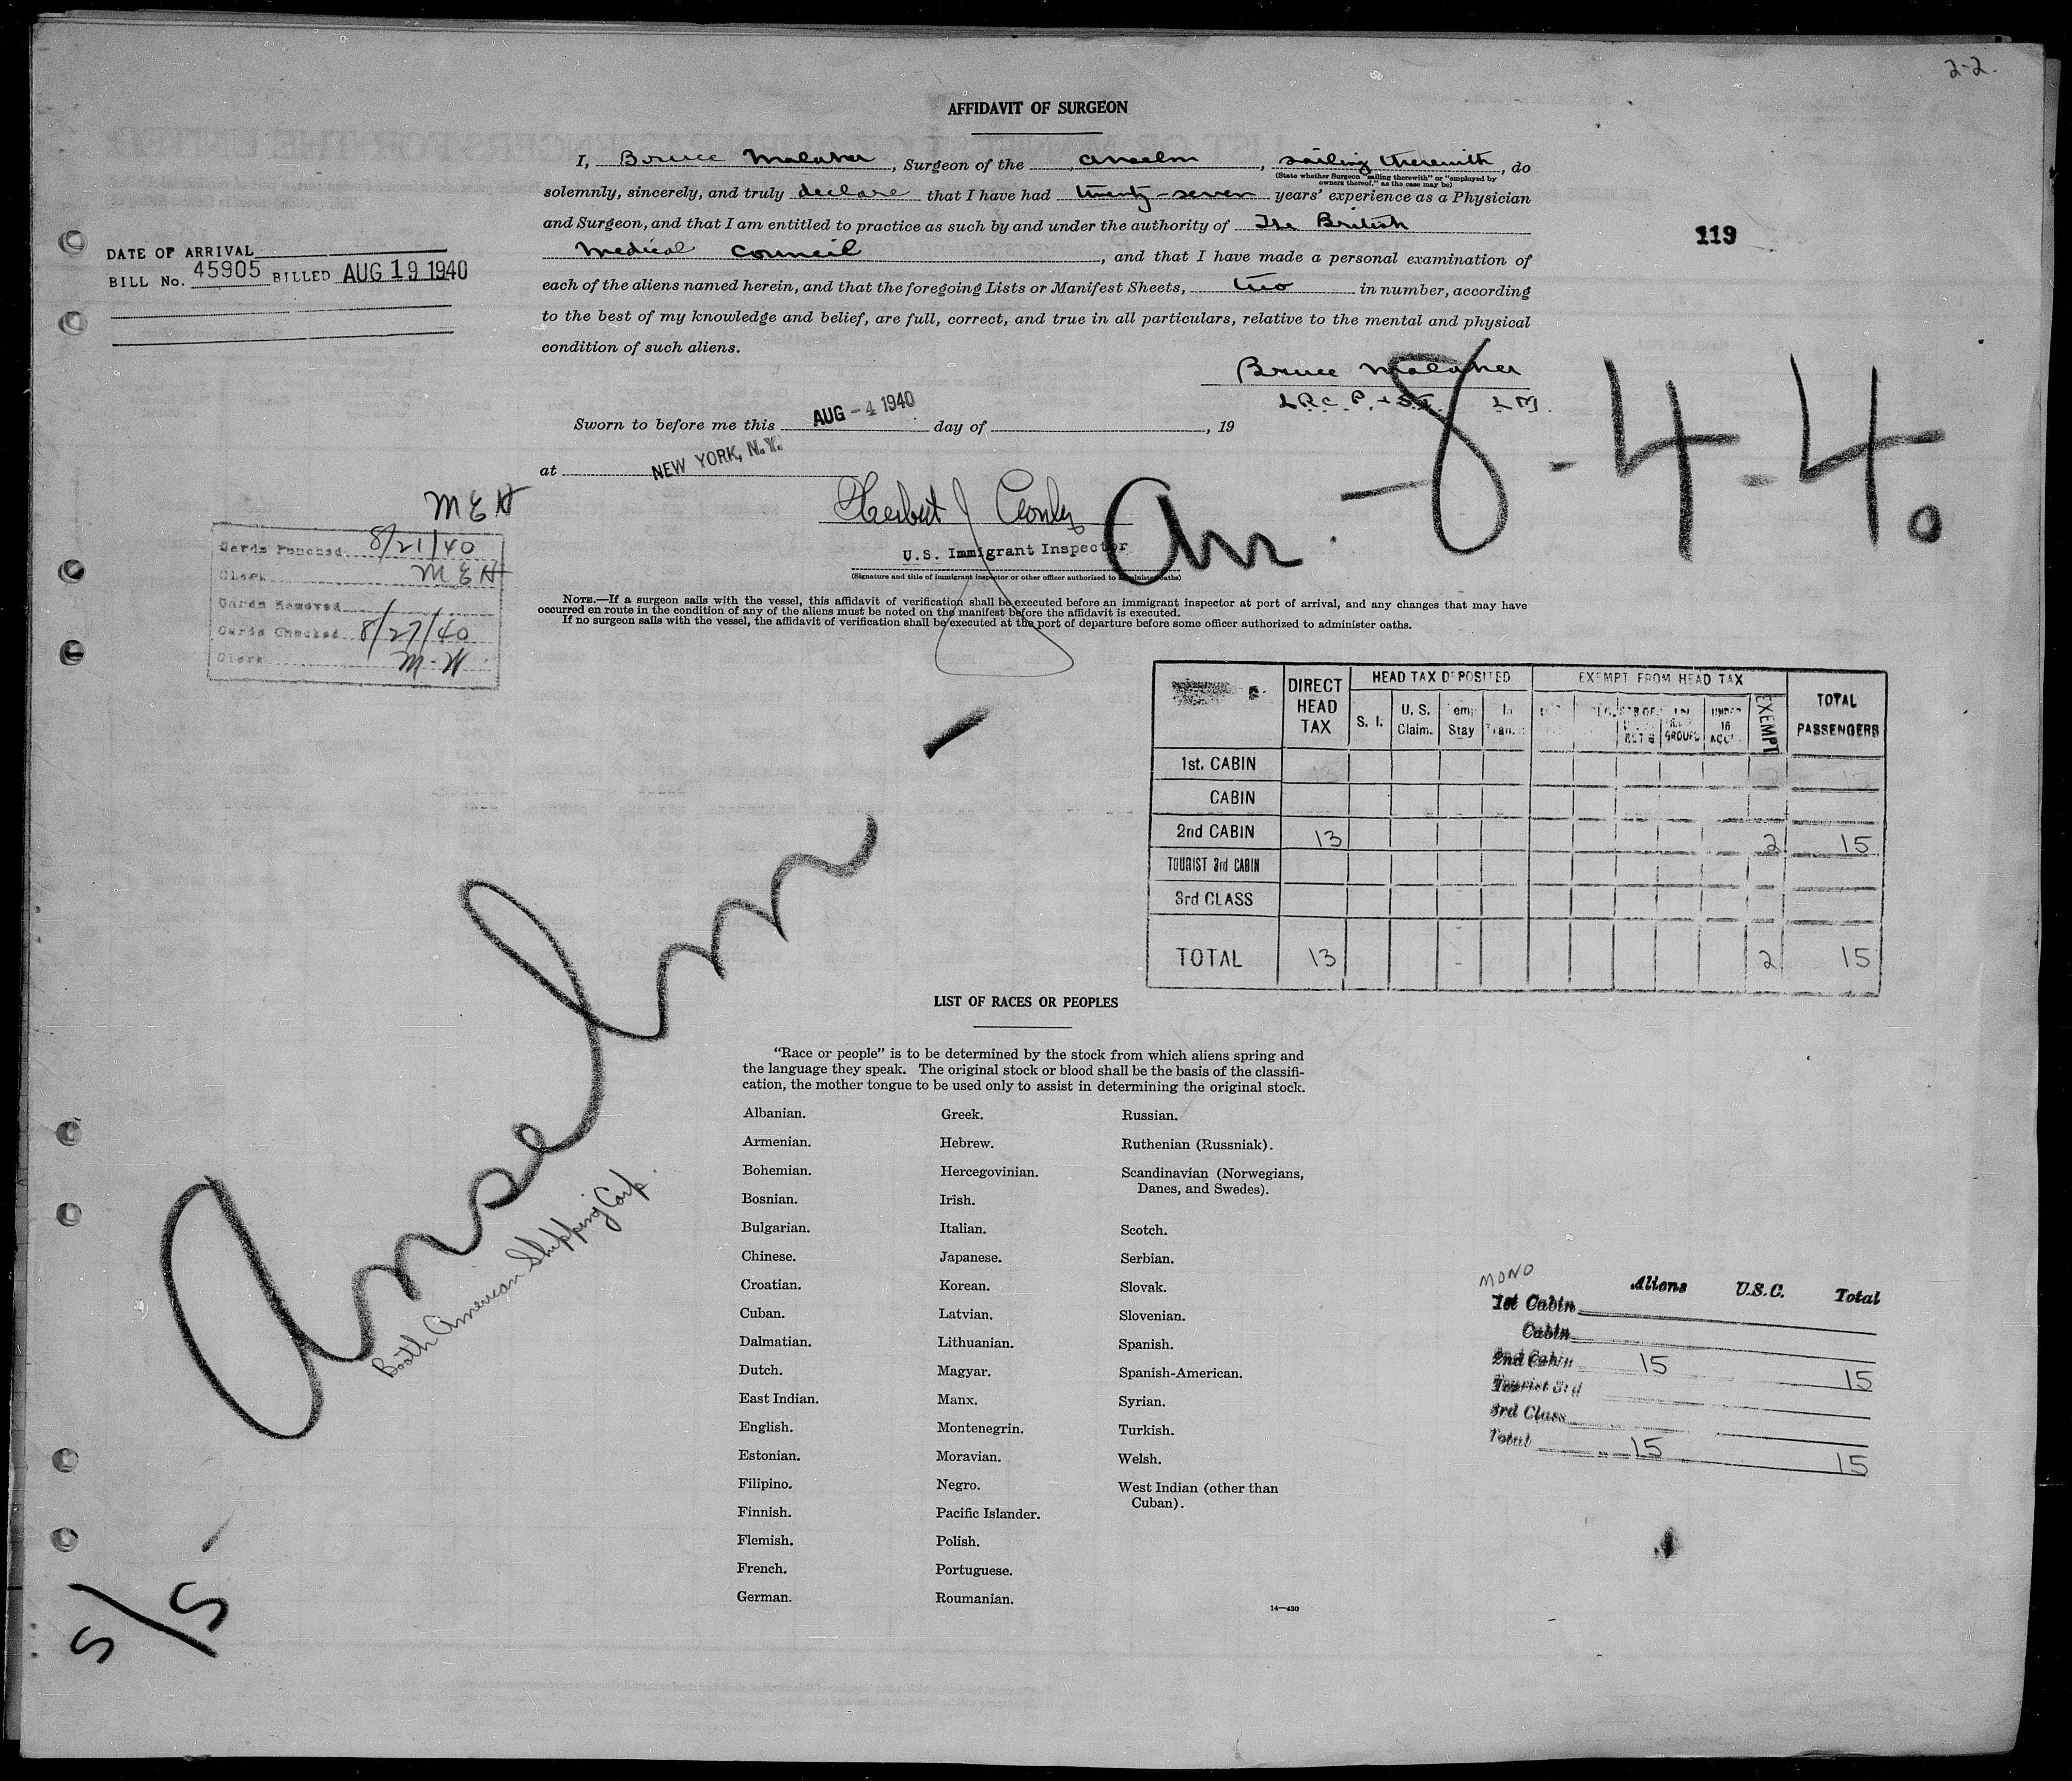 2-2.
AFFIDAVIT OF SURGEON
I, Bruce, Surgeon of the Anselm, sailing therewith, do
(State whether Surgeon "sailing therewith" or "employed by
owners thereof," as the case may be)
solemnly, sincerely, and truly declare that I have had twenty-seven years' experience as a Physician
and Surgeon, and that I am entitled to practice as such by and under the authority of The British
Medical Council, and that I have made a personal examination of
each of the aliens named herein, and that the foregoing Lists or Manifest Sheets, two in number, according
to the best of my knowledge and belief, are full, correct, and true in all particulars, relative to the mental and physical
condition of such aliens.
119
DATE OF ARRIVAL
BILL No. 45905 BILLED AUG 19 1940
Bruce
L.R.C.P. + S.I. L M.
Sworn to before me this AUG - 4 1940 day of , 19
at NEW YORK, N.Y.
Herbert J
U.S. Immigrant Inspector
(Signature and title of immigrant inspector or other officer authorized to administer oaths)
Arr. - 8 - 4 - 40
MEH
Cards Punched 8/21/40
Clerk MEH
Cards Removed
Cards Checked 8/27/40
Clerk M-W
NOTE.—If a surgeon sails with the vessel, this affidavit of verification shall be executed before an immigrant inspector at port of arrival, and any changes that may have
occurred en route in the condition of any of the aliens must be noted on the manifest before the affidavit is executed.
If no surgeon sails with the vessel, the affidavit of verification shall be executed at the port of departure before some officer authorized to administer oaths.
DIRECT HEAD TAX HEAD TAX DEPOSITED EXEMPT FROM HEAD TAX TOTAL PASSENGERS
S. I. U. S. Claim. Temp Stay In Tran. GROUPS UNDER 16 ACC. EXEMPT
1st. CABIN
CABIN
2nd CABIN 13 2 15
TOURIST 3rd CABIN
3rd CLASS
TOTAL 13 2 15
Anselm -
Booth American Shipping Corp.
S/S -
LIST OF RACES OR PEOPLES
"Race or people" is to be determined by the stock from which aliens spring and
the language they speak. The original stock or blood shall be the basis of the classifi-
cation, the mother tongue to be used only to assist in determining the original stock.
Albanian.
Armenian.
Bohemian.
Bosnian.
Bulgarian.
Chinese.
Croatian.
Cuban.
Dalmatian.
Dutch.
East Indian.
English.
Estonian.
Filipino.
Finnish.
Flemish.
French.
German.
Greek.
Hebrew.
Hercegovinian.
Irish.
Italian.
Japanese.
Korean.
Latvian.
Lithuanian.
Magyar.
Manx.
Montenegrin.
Moravian.
Negro.
Pacific Islander.
Polish.
Portuguese.
Roumanian.
Russian.
Ruthenian (Russniak).
Scandinavian (Norwegians,
Danes, and Swedes).
Scotch.
Serbian.
Slovak.
Slovenian.
Spanish.
Spanish-American.
Syrian.
Turkish.
Welsh.
West Indian (other than
Cuban).
14—430
MONO
Aliens U.S.C. Total
1st Cabin
Cabin
2nd Cabin 15 15
Tourist 3rd
3rd Class
Total 15 15